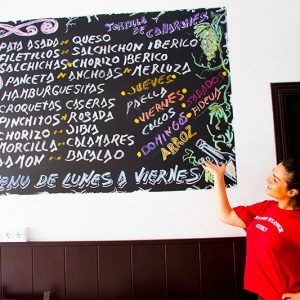 TORTILLA DE CAMARONES
PATA ASADO ~ QUESO
FILETILLOS ~ SALCHICHON IBERICO
SALCHICHAS ~ CHORIZO IBERICO
PANCETA ~ ANCHOAS ~ MERLUZA
HAMBURGUESITAS
CROQUETAS CASERAS
PINCHITOS ~ ROSADA
CHORIZO ~ JIBIA
MORCILLA ~ CALAMARES
JAMON ~ BACALAO
• JUEVES •
PAELLA
• VIERNES •
CALLOS
• DOMINGOS •
ARROZ
• SABADOS •
FIDEUA
MENU DE LUNES A VIERNES
GIRLS